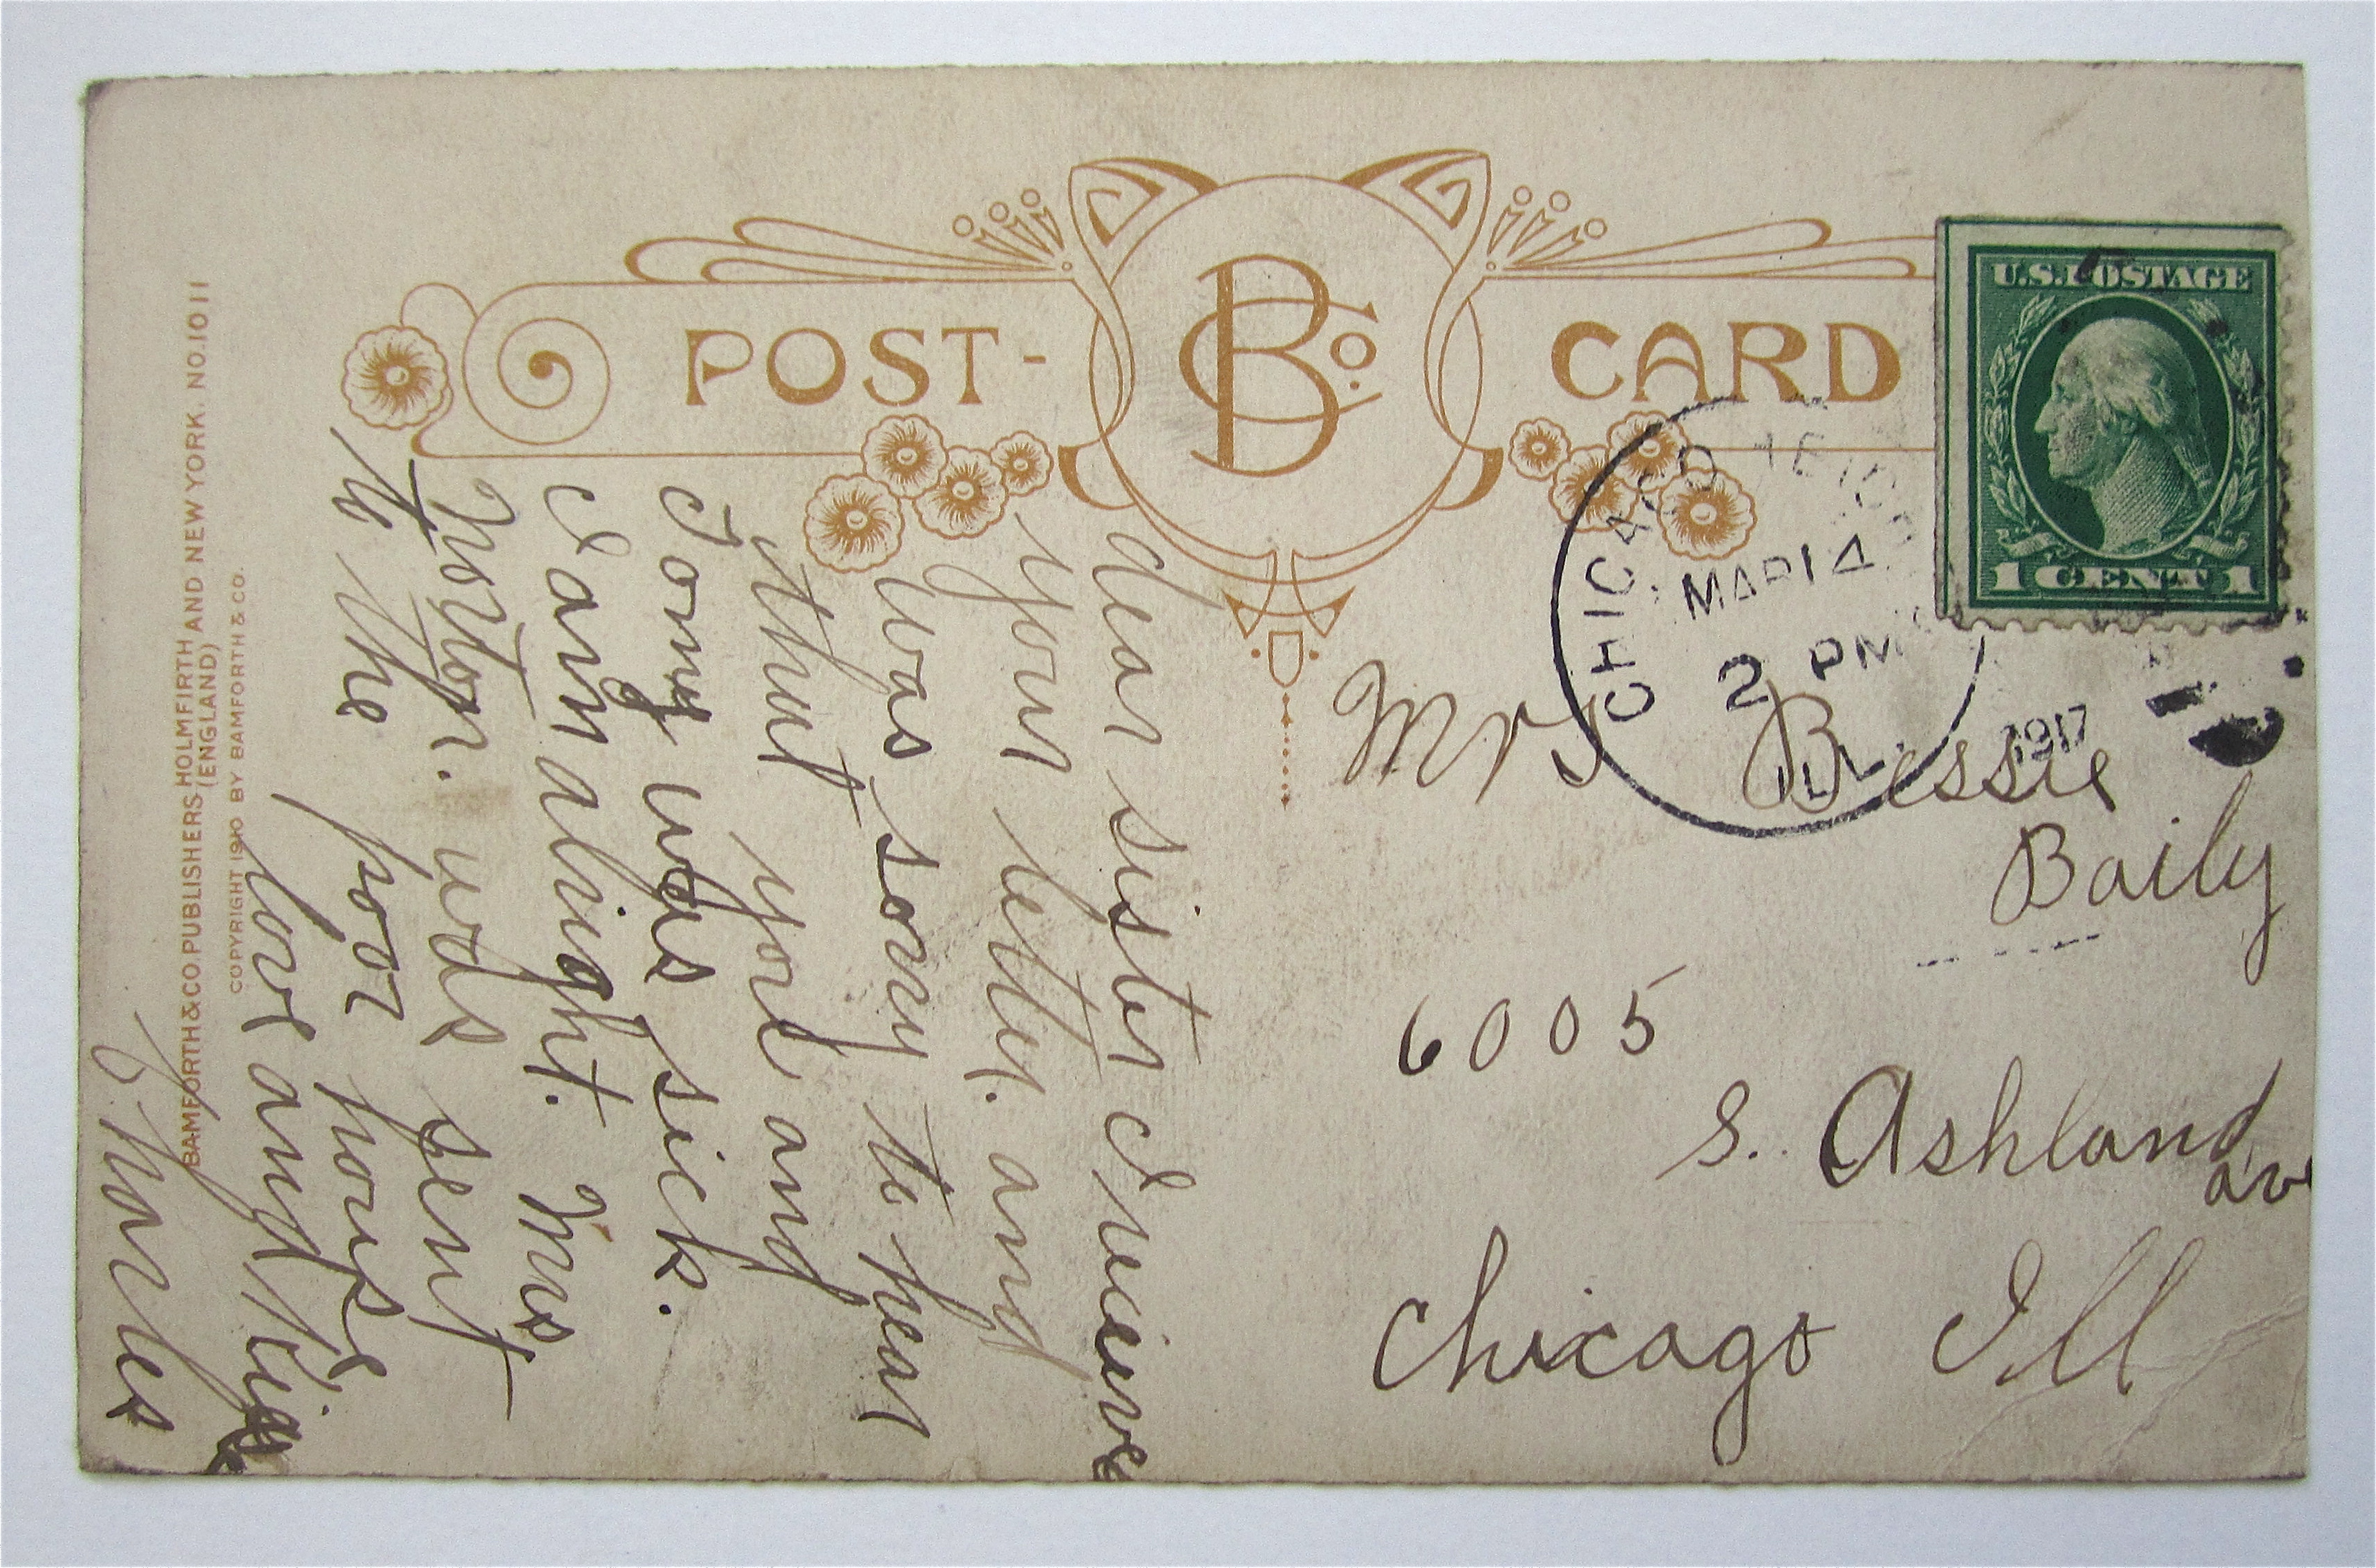 POST-
B Co.
CARD
U.S. POSTAGE
1 CENT 1
CHICAGO HEIGHTS
MAR 14
2 PM
1917
ILL.
Mrs Bessie
Baily
6005
S. Ashland
ave
Chicago Ill
dear sister I recieve
your letter. and
was sorry to hear
that you and
Tomy was sick.
I am alright. Mrs
Norton. was sent
to the poor house
love and kiss
Charles
BAMFORTH & CO. PUBLISHERS HOLMFIRTH AND NEW YORK. NO. 1011
(ENGLAND)
COPYRIGHT 1910 BY BAMFORTH & CO.